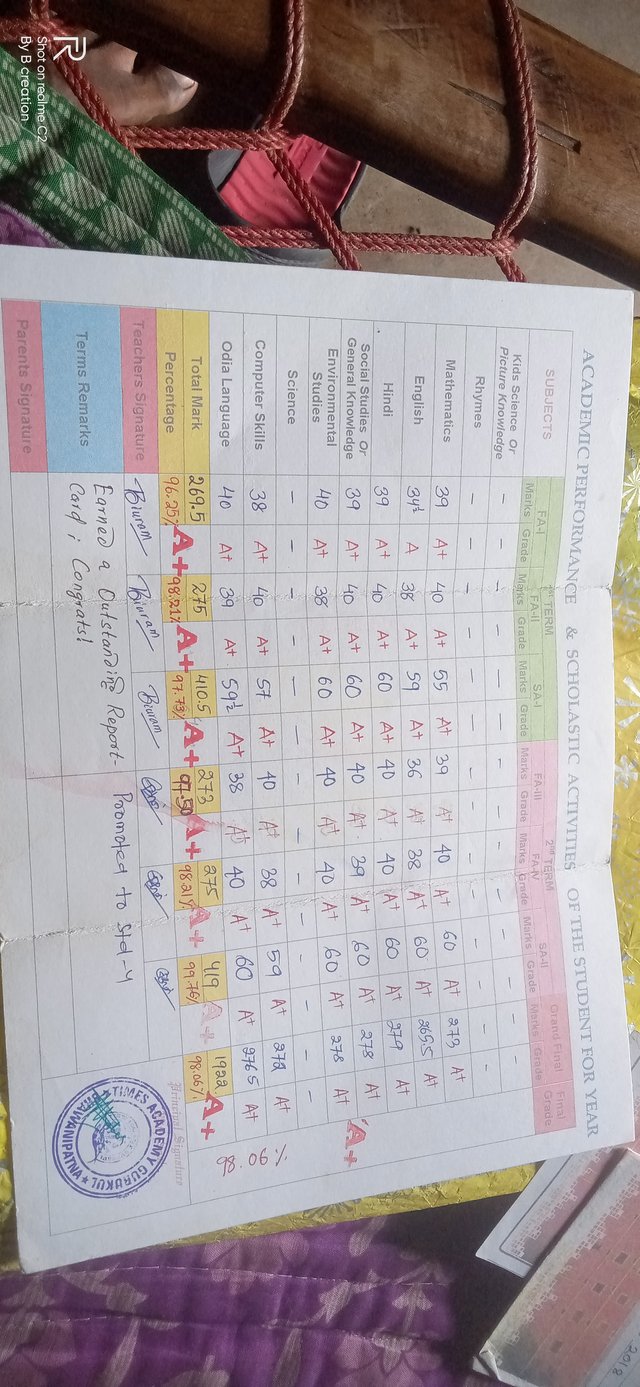 ACADEMIC PERFORMANCE & SCHOLASTIC ACTIVITIES OF THE STUDENT FOR YEAR
SUBJECTS 1st TERM 2nd TERM Grand Final Final
FA-I FA-II SA-I FA-III FA-IV SA-II Marks Grade Grade
Marks Grade Marks Grade Marks Grade Marks Grade Marks Grade Marks Grade
Kids Science Or Picture Knowledge – – – – – – – – – – – – – –
Rhymes – – – – – – – – – – – – – –
Mathematics 39 A+ 40 A+ 55 A+ 39 A+ 40 A+ 60 A+ 273 A+
English 34½ A 38 A+ 59 A+ 36 A+ 38 A+ 60 A+ 265.5 A+
Hindi 39 A+ 40 A+ 60 A+ 40 A+ 40 A+ 60 A+ 279 A+
Social Studies Or General Knowledge 39 A+ 40 A+ 60 A+ 40 A+ 39 A+ 60 A+ 278 A+ A+
Environmental Studies 40 A+ 38 A+ 60 A+ 40 A+ 40 A+ 60 A+ 278 A+
Science – – – – – – – – – – – – – –
Computer Skills 38 A+ 40 A+ 57 A+ 40 A+ 38 A+ 59 A+ 272 A+
Odia Language 40 A+ 39 A+ 59½ A+ 38 A+ 40 A+ 60 A+ 276.5 A+
Total Mark 269.5 275 410.5 273 275 419 1922
Percentage 96.25% A+ 98.21% A+ 97.73% A+ 97.50 A+ 98.21% A+ 99.76% A+ 98.06% A+
% 90.86
Teachers Signature
Principal Signature
Terms Remarks Earned a Outstanding Report Card ; Congrats!
Promoted to std-4
Parents Signature
TIMES ACADEMY GURUKUL
BHAWANIPATNA
2018
Shot on redme C2
By B creation